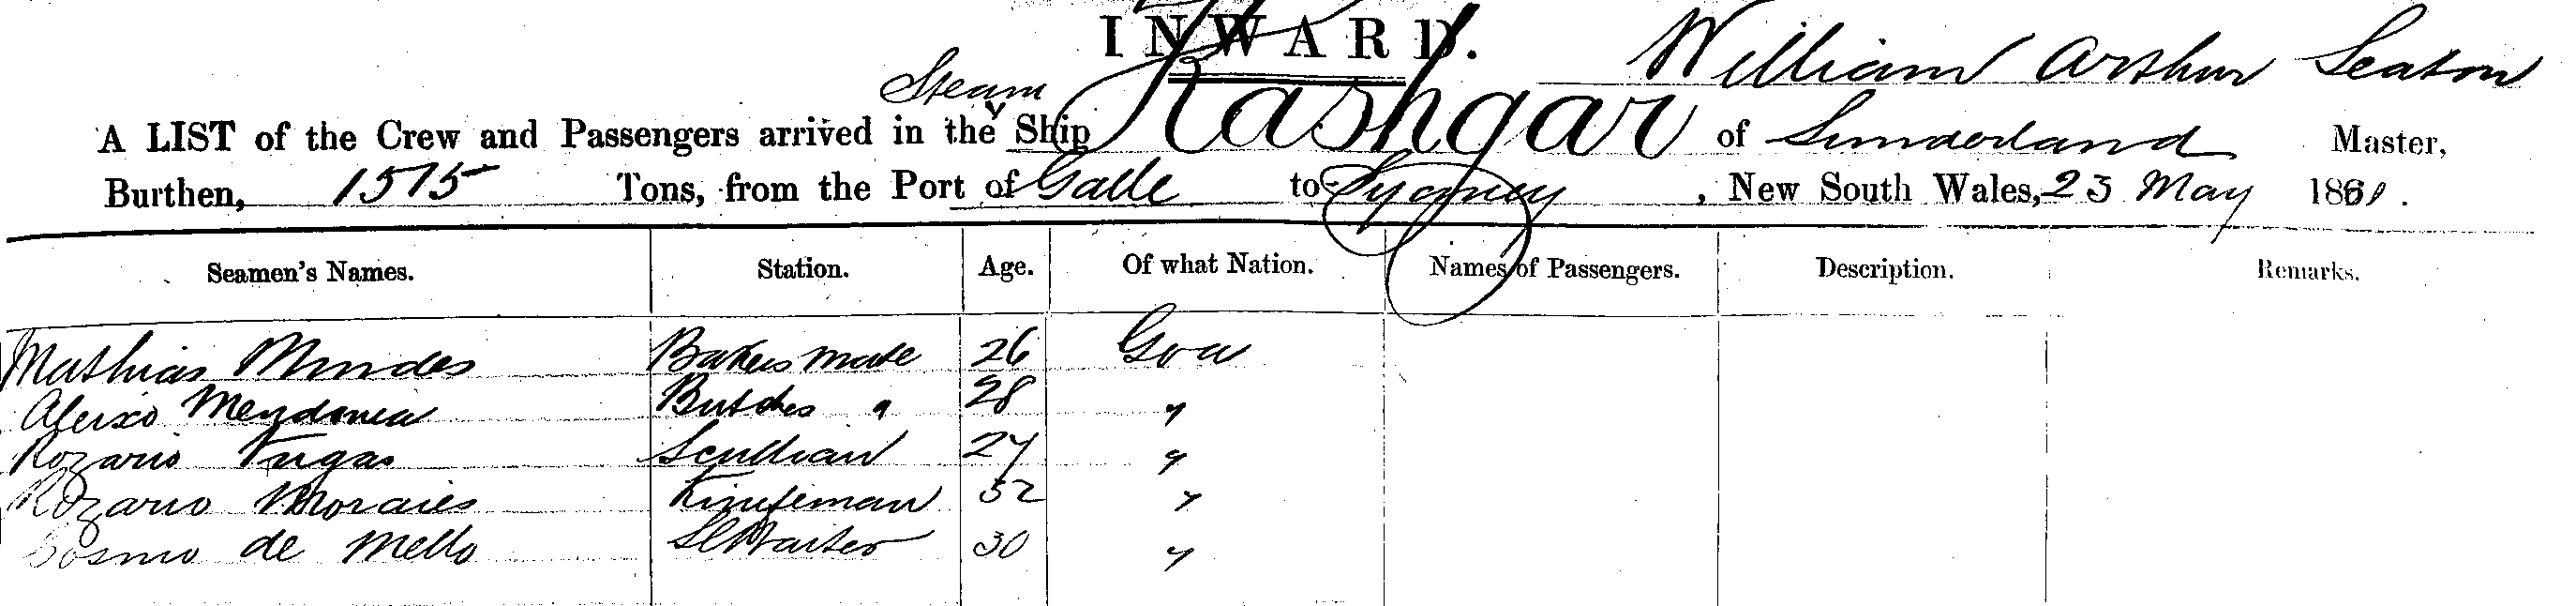 INWARD.
William Arthur Seaton
Steam
A LIST of the Crew and Passengers arrived in the Ship Kashgar of Sunderland Master,
Burthen, 1515 Tons, from the Port of Galle to Sydney, New South Wales, 23 May 18
Seamen's Names. Station. Age. Of what Nation. Names of Passengers. Description. Remarks.
Mathias Mendes Bakers Mate 26 Goa
Aleixo Mendonca Butchers " 28 "
Rozario Vugas Scullian 27 "
Rozario Moraies Knifeman 32 "
Cosmo de Mello 30 "